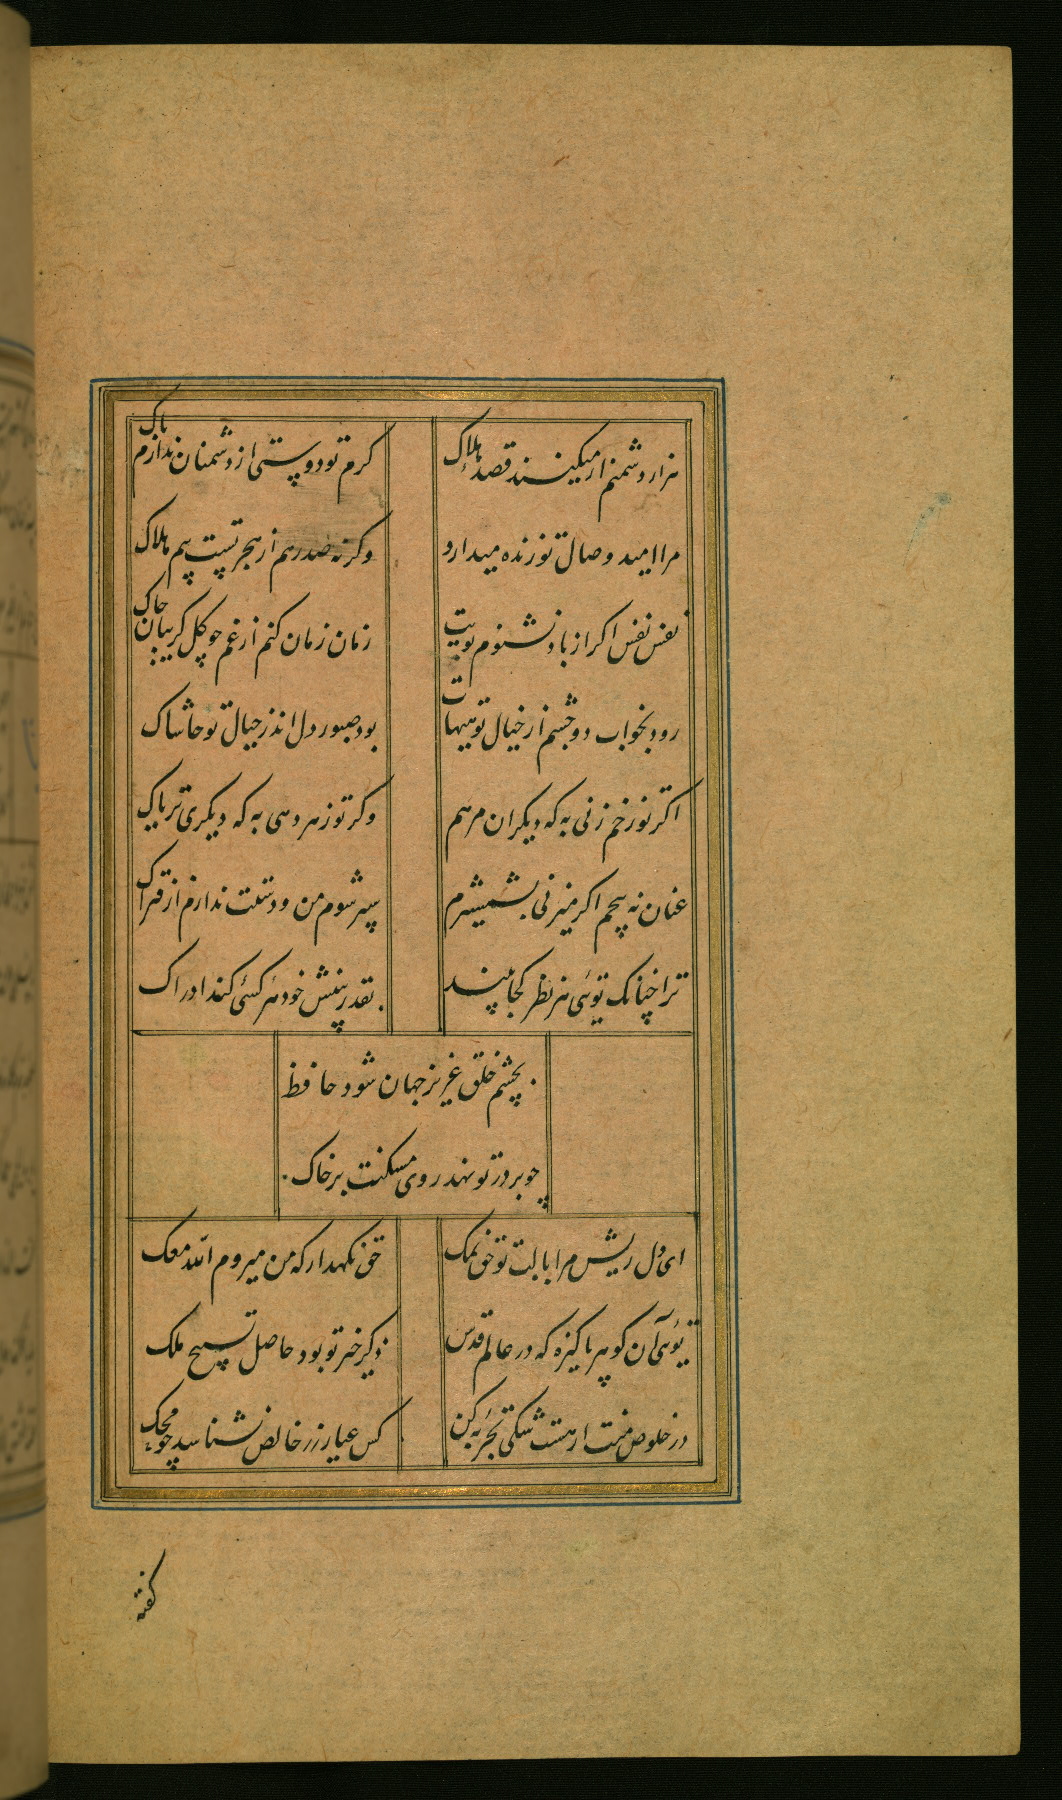 هزار دشمنم ار میکنند قصد هلاک
کرم تو دوستی از دشمنان ندارم باک
مرا امید وصال تو زنده میدارد
وکرنه صدرهم از هجر تست بیم هلاک
نفس نفس اکر از باد نشنوم بویت
زمان زمان کنم از غم چو کل کریبان چاک
رود بخواب دو چشم از خیال تو هیهات
بود صبور دل اندر خیال تو حاشاک
اکر تو زخم زنی به که دیکران مرهم
وکر تو زهر دهی به که دیکری تریاک
عنان نه پیچم اکر میزنی بشمشیرم
سپر شوم من و دستت ندارم از فتراک
ترا چنانک توئی هر نظر کجا بیند
بقدر بینش خود هر کسی کند ادراک
بچشم خلق عزیز جهان شود حافظ
چو بر در تو نهد روی مسکنت بر خاک
ای دل ریش مرا با لبت تو حق نمک
حق نکهدار که من میروم الله معک
توئی آن کوهر پاکیزه که در عالم قدس
ذکر خیر تو بود حاصل تسبیح ملک
در خلوص منت ار هست شکی تجربه کن
کس عیار زر خالص نشناسد چو محک
کفته